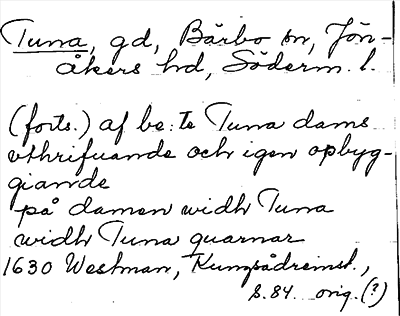 Tuna, gd, Bärbo sn, Jön-
åkers hd, Söderm. l.
(forts.) af be:te Tuna dams
vthrifuande och igen opbyg-
giande
på damen widh Tuna
widh Tuna quarnar
1630 Westman, Kungsådreinst.,
S. 84. orig. (?)